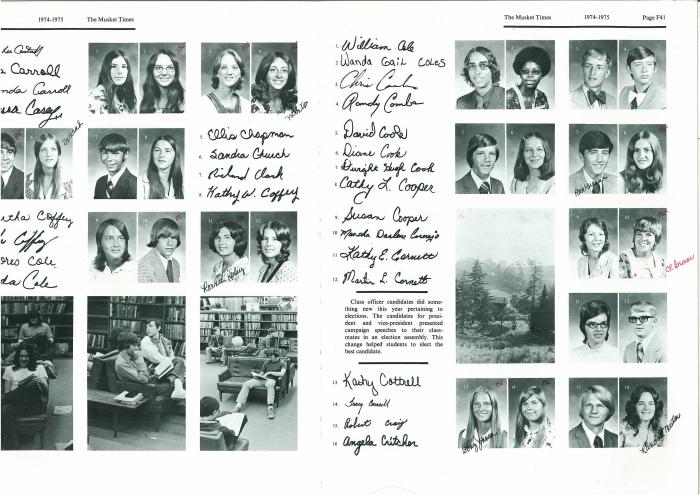 1974-1975 The Musket Times
Carroll
Carroll
Casey
5. Ellia Chapman
6. Sandra Church
7. Richard Clark
8. Kathy W. Coffey
Coffey
Coffey
Cole
Cole
The Musket Times 1974-1975 Page F41
1. William Cole
2. Wanda Gail Coles
3. Chris Combs
4. Randy Combs
5. David Cook
6. Diane Cook
7. Dwight Hugh Cook
8. Cathy L. Cooper
9. Susan Cooper
10. Darlene Cornejo
11. Kathy E. Cornett
12. Martin L. Cornett
Class officer candidates did some-
thing new this year pertaining to
elections. The candidates for presi-
dent and vice-president presented
campaign speeches to their class-
mates in an election assembly. This
change helped students to elect the
best candidate.
13. Kathy Cottrell
14. Tracy
15. Robert Craig
16. Angela Critcher